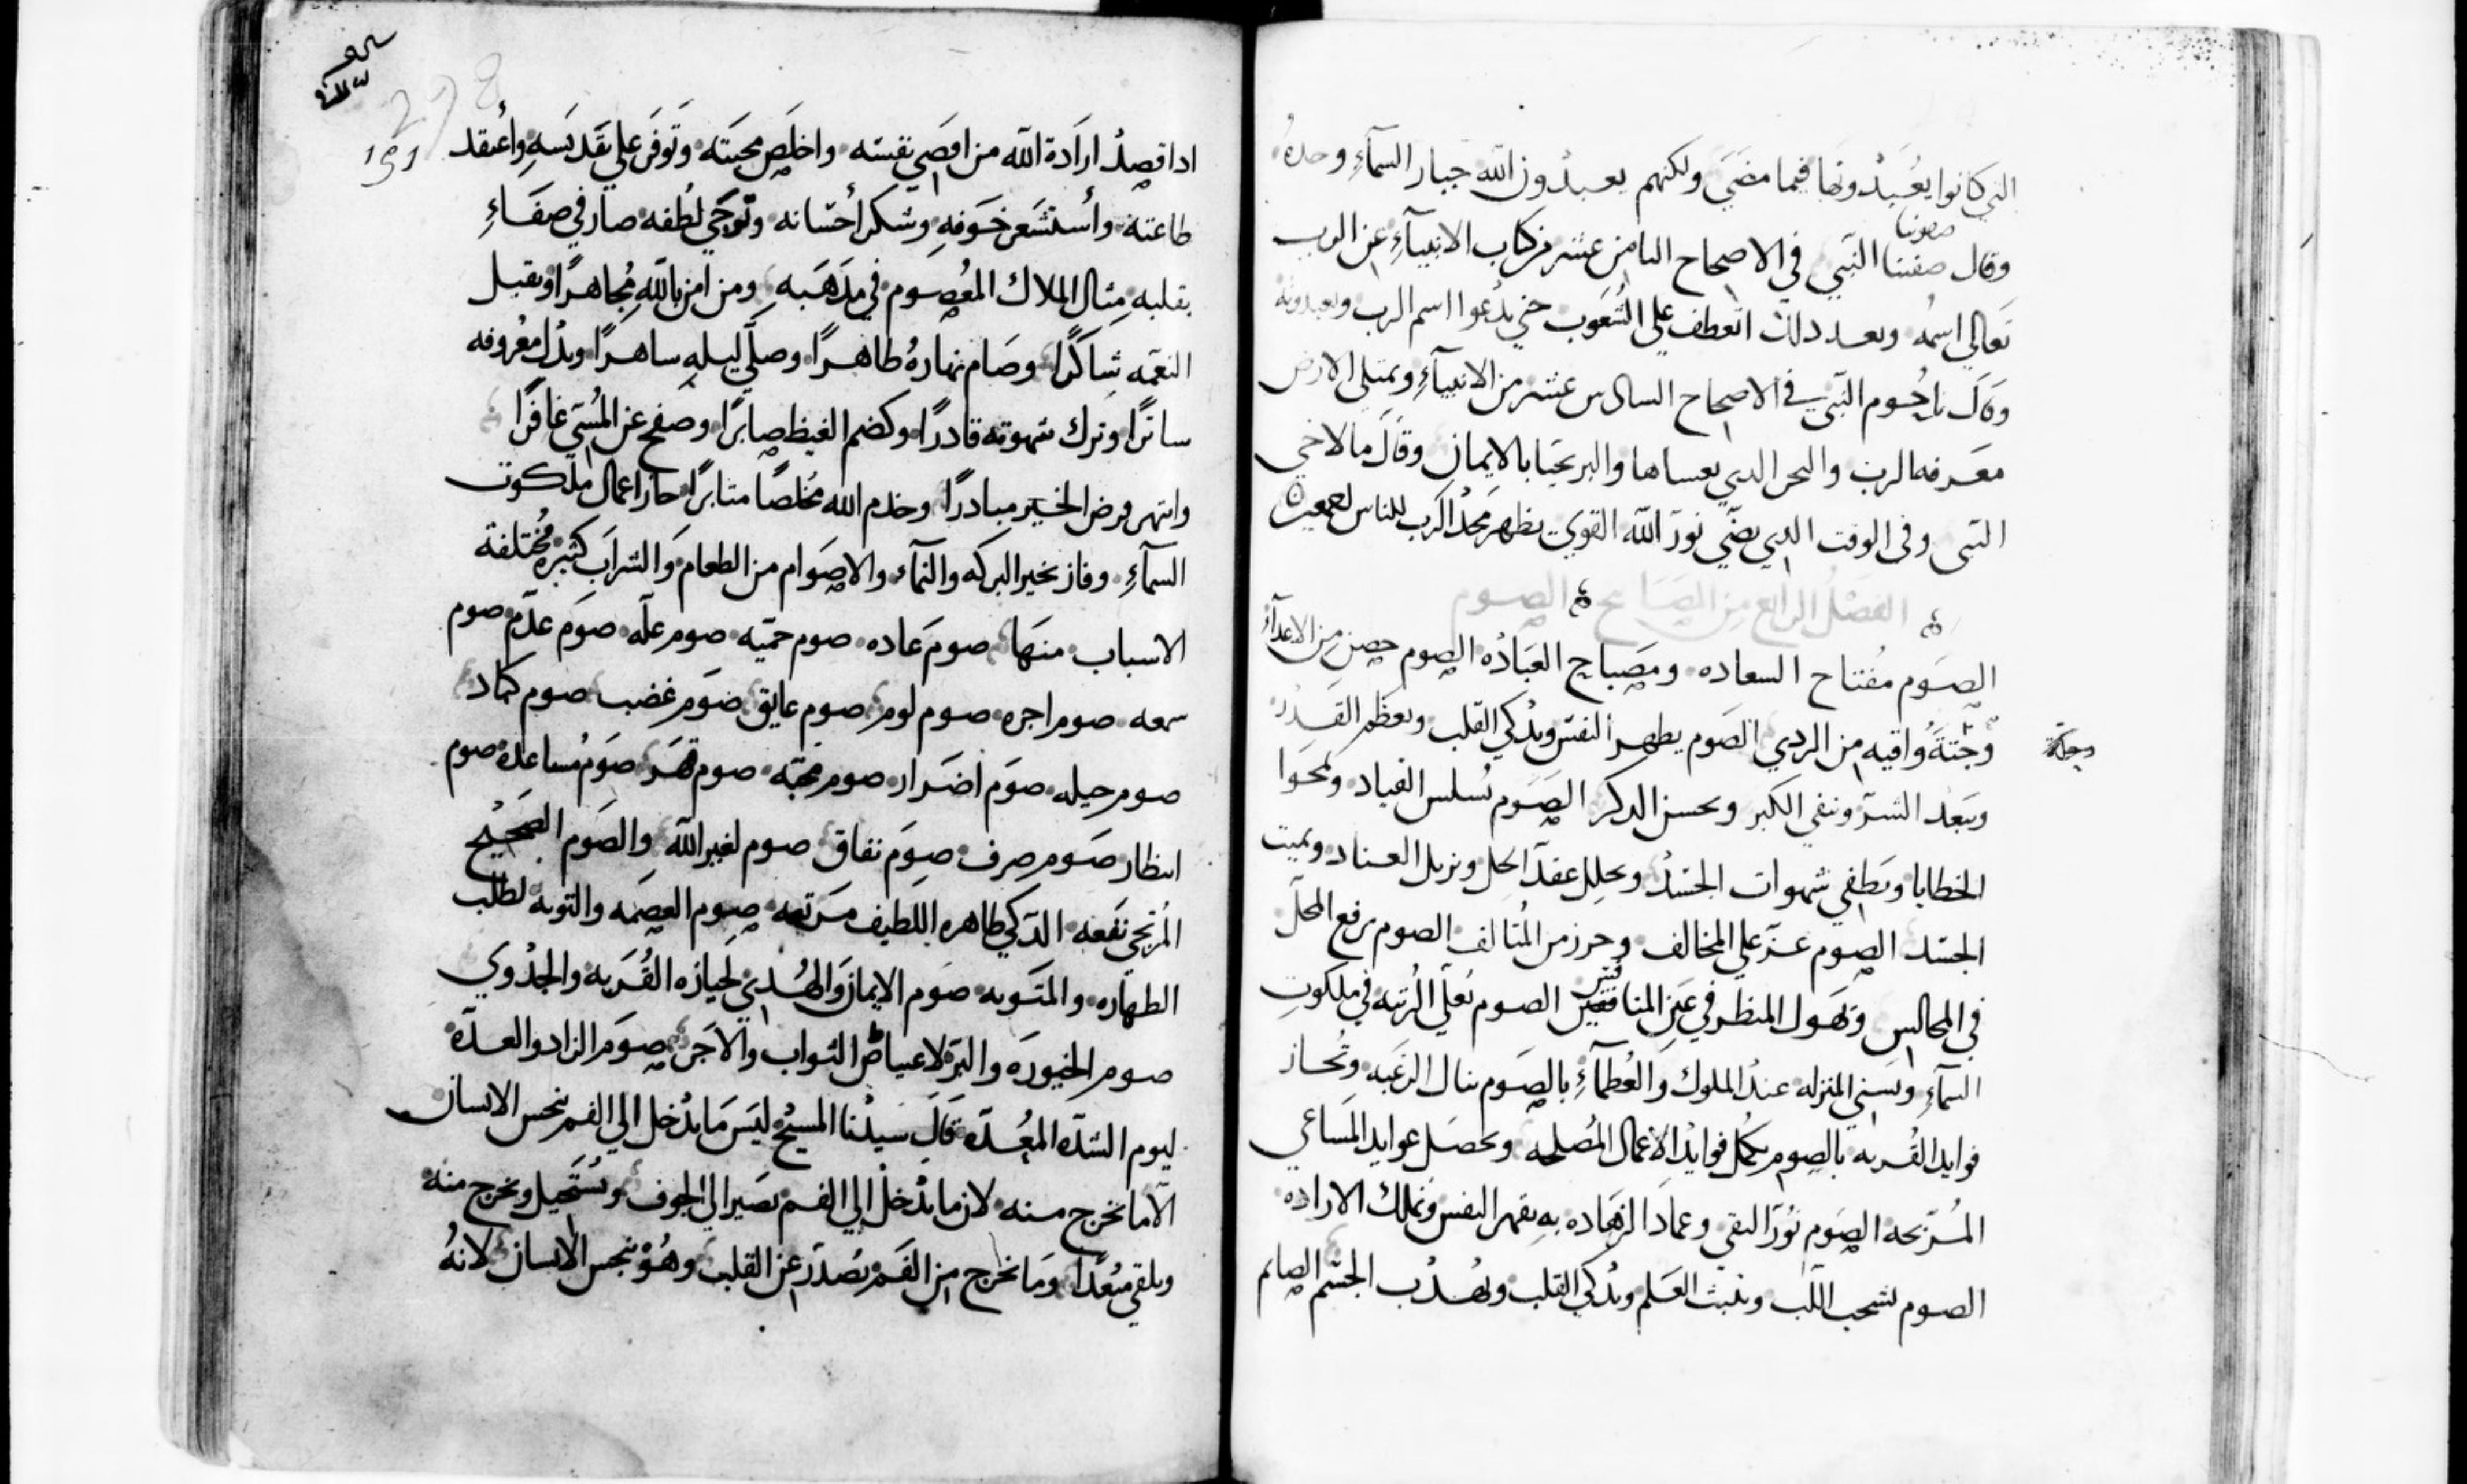 التي كانوا يعبدونها فيما مضى ولكنهم يعبدون الله جبار السماء وحده
صفونيا
وقال صفنيا النبي في الاصحاح الثامن عشر من كتاب الانبياء عن الرب
تعالي اسمه وبعد دلك انعطف علي الشعوب حتي يدعوا اسم الرب ويعبدونه
وقال ناحوم النبي في الاصحاح السادس عشر من الانبياء وتمتلي الارض
معرفه الرب والبحر الدي يغساها والبر تحيا بالايمان وقال مالاخي
النبي وفي الوقت الدي يضي نور الله القوي يظهر مجد الرب للناس اجمعين
الفصل الرابع من المصابيح الصوم
الصوم مفتاح السعاده ومصباح العباده الصوم حصن من الاعداء
وجنة واقيه من الردي الصوم يطهر النفس ويدكي القلب ويعظم القدر
ويبعد الشر وينفي الكبر ويحسن الدكر الصوم يسلس القياد ويمحوا
الخطايا ويطفي شهوات الجسد ويحلل عقد الحل ويزيل العناد ويميت
الجسد الصوم عز علي المخالف وحرز من المتالف الصوم يرفع المحل
في المجالس ويهول المنظر في عين المنافقين الصوم يعلي الرتبه في ملكوت
السماء ويسني المنزله عند الملوك والعظماء بالصوم ينال الرغبه وتحاز
فوايد القربه بالصوم تكمل فوايد الاعمال المصلحه وتحصل عوايد المساعي
المربحه الصوم نور التقي وعماد الزهاده به يقهر النفس وتملك الاراده
الصوم يشحب اللب ويثبت العلم ويدكي القلب ويهدب الجسم الصايم
ادا قصد ارادة الله من اقصي نفسه واخلص محبته وتوفر علي تقديسه واعتقد
طاعته واستشعر خوفه وشكر احسانه وترجي لطفه صار في صفاء
بقلبه مثال الملاك المعصوم في مدهبه ومن امن بالله مجاهرا وتقبل
النعمه شاكرا وصام نهاره طاهرا وصلي ليله ساهرا وبدل معروفه
ساترا وترك شهوته قادرا وكضم الغيظ صابرا وصفح عن المسي غافرا
وانتهز فرض الخير مبادرا وخدم الله مخلصا مثابرا حاز اعمال ملكوت
السماء وفاز بخير البركه والنماء والاصوام من الطعام والشراب كثيره مختلفة
الاسباب منها صوم عاده صوم حميه صوم عله صوم عدم صوم
سمعه صوم اجره صوم لوم صوم عايق صوم غضب صوم كماد
صوم حيله صوم اضرار صوم محبه صوم قهر صوم مساعده صوم
انتظار صوم صرف صوم نفاق صوم لغير الله والصوم الصحيح
المرتجي نفعه الدكي طاهره اللطيف مرتعه صوم العصمه والتوبه لطلب
الطهاره والمثوبه صوم الايمان والهدي لحيازه القربه والجدوي
صوم الخيوره والبر لاعتياض الثواب والاجر صوم الزاد والعده
ليوم الشده المعده قال سيدنا المسيح ليس ما يدخل الي الفم ينجس الانسان
الا ما يخرج منه لان ما يدخل الي الفم يصير الي الجوف ويستحيل ويخرج منه
ويلقي مبعدا وما يخرج من الفم يصدر عن القلب وهو ينجس الانسان لانه
278
191